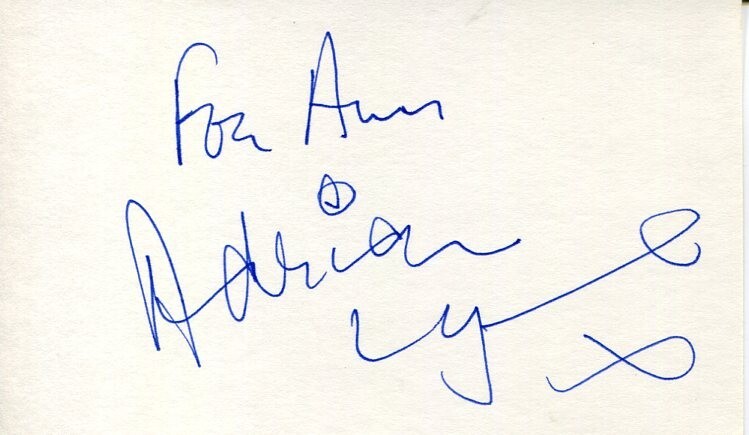 For Ann
Adrian
Lyne
x